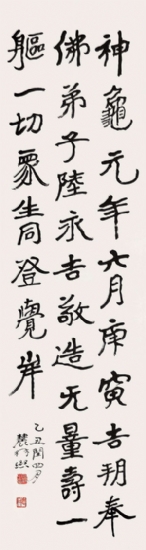 神龜元年六月庚寅吉朔奉
佛弟子陸永吉敬造无量壽一
軀一切眾生同登覺岸
乙丑閏四月
農髯熙